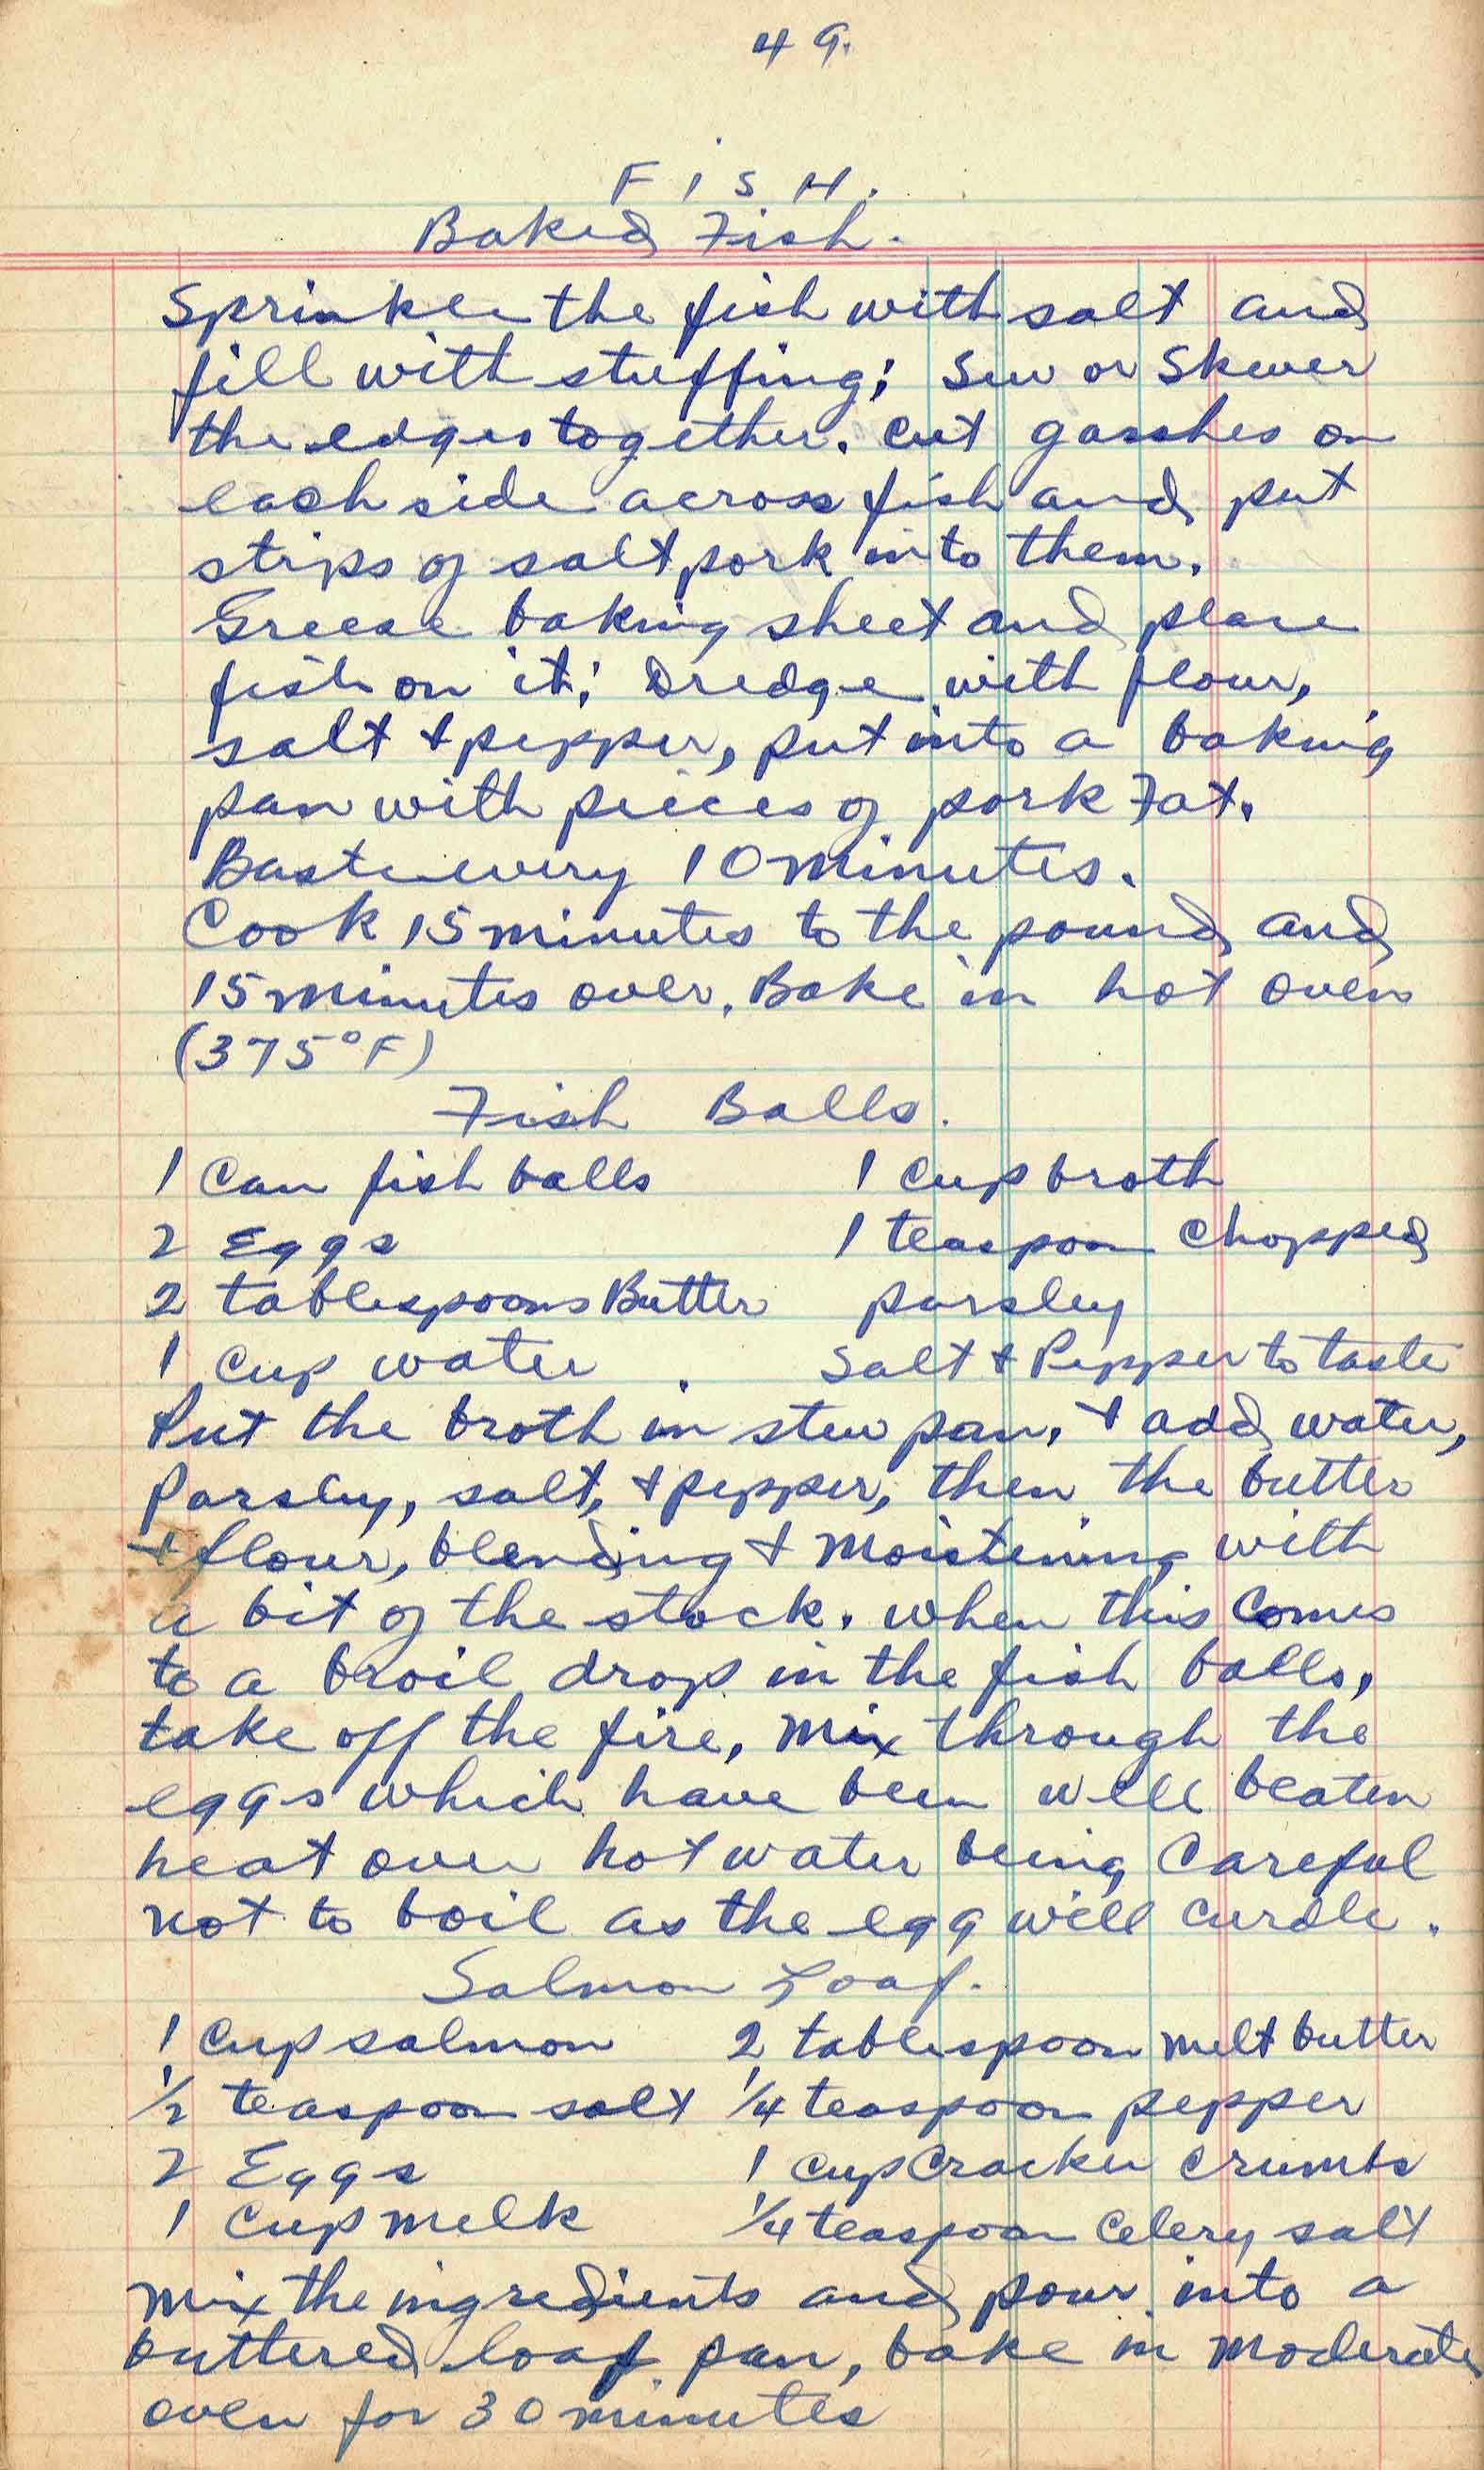 49.
FISH.
Baked Fish.
Sprinkle the fish with salt and
fill with stuffing; Sew or Skewer
the edges together. Cut gasshes on
each side across fish and put
strips of salt pork into them.
Grease baking sheet and place
fish on it; Dredge with flour,
salt & pepper, put into a baking
pan with pieces of pork Fat.
Baste every 10 minutes.
Cook 15 minutes to the pound and
15 minutes over. Bake in hot oven
(375°F)
Fish Balls.
1 Can fish balls 1 Cup broth
2 Eggs 1 teaspoon Chopped
2 tablespoons Butter parsley
1 Cup water Salt & Pepper to taste
Put the broth in stew pan, & add water,
Parsley, salt, & pepper, then the butter
& flour, blending & Moistening with
a bit of the stock. when this Comes
to a broil drop in the fish balls,
take off the fire, Mix through the
eggs which have been well beaten
heat over hot water being Careful
not to boil as the egg will curdle.
Salmon Loaf.
1 Cup salmon 2 tablespoon melt butter
1/2 teaspoon salt 1/4 teaspoon pepper
2 Eggs 1 Cup Cracker Crumbs
1 Cup Melk 1/4 teaspoon Celery salt
Mix the ingredients and pour into a
buttered loaf pan, bake in Moderate
oven for 30 minutes